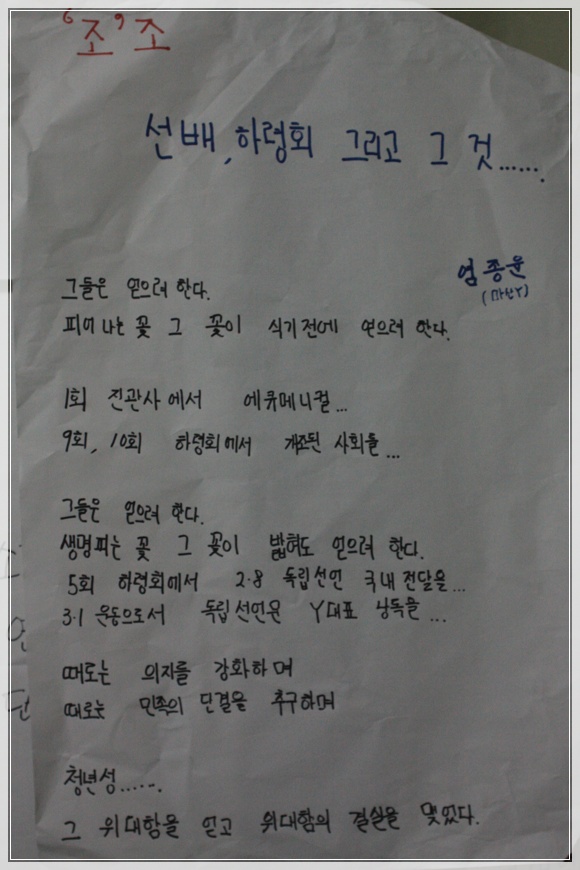 '조'조
선배, 하령회 그리고 그 것.......
엄종윤
(마산Y)
그들은 얻으려 한다.
피어나는 꽃 그 꽃이 식기전에 얻으려 한다.
1회 진관사에서 에큐메니컬...
9회, 10회 하령회에서 개조된 사회를...
그들은 얻으려 한다.
생명피는 꽃 그 꽃이 밟혀도 얻으려 한다.
5회 하령회에서 2.8 독립선언 국내전달을...
3.1 운동으로서 독립선언문 Y대표 낭독을...
때로는 의지를 강화하며
때로는 민족의 단결을 추구하며
청년성.......
그 위대함을 얻고 위대함의 결실을 맺었다.